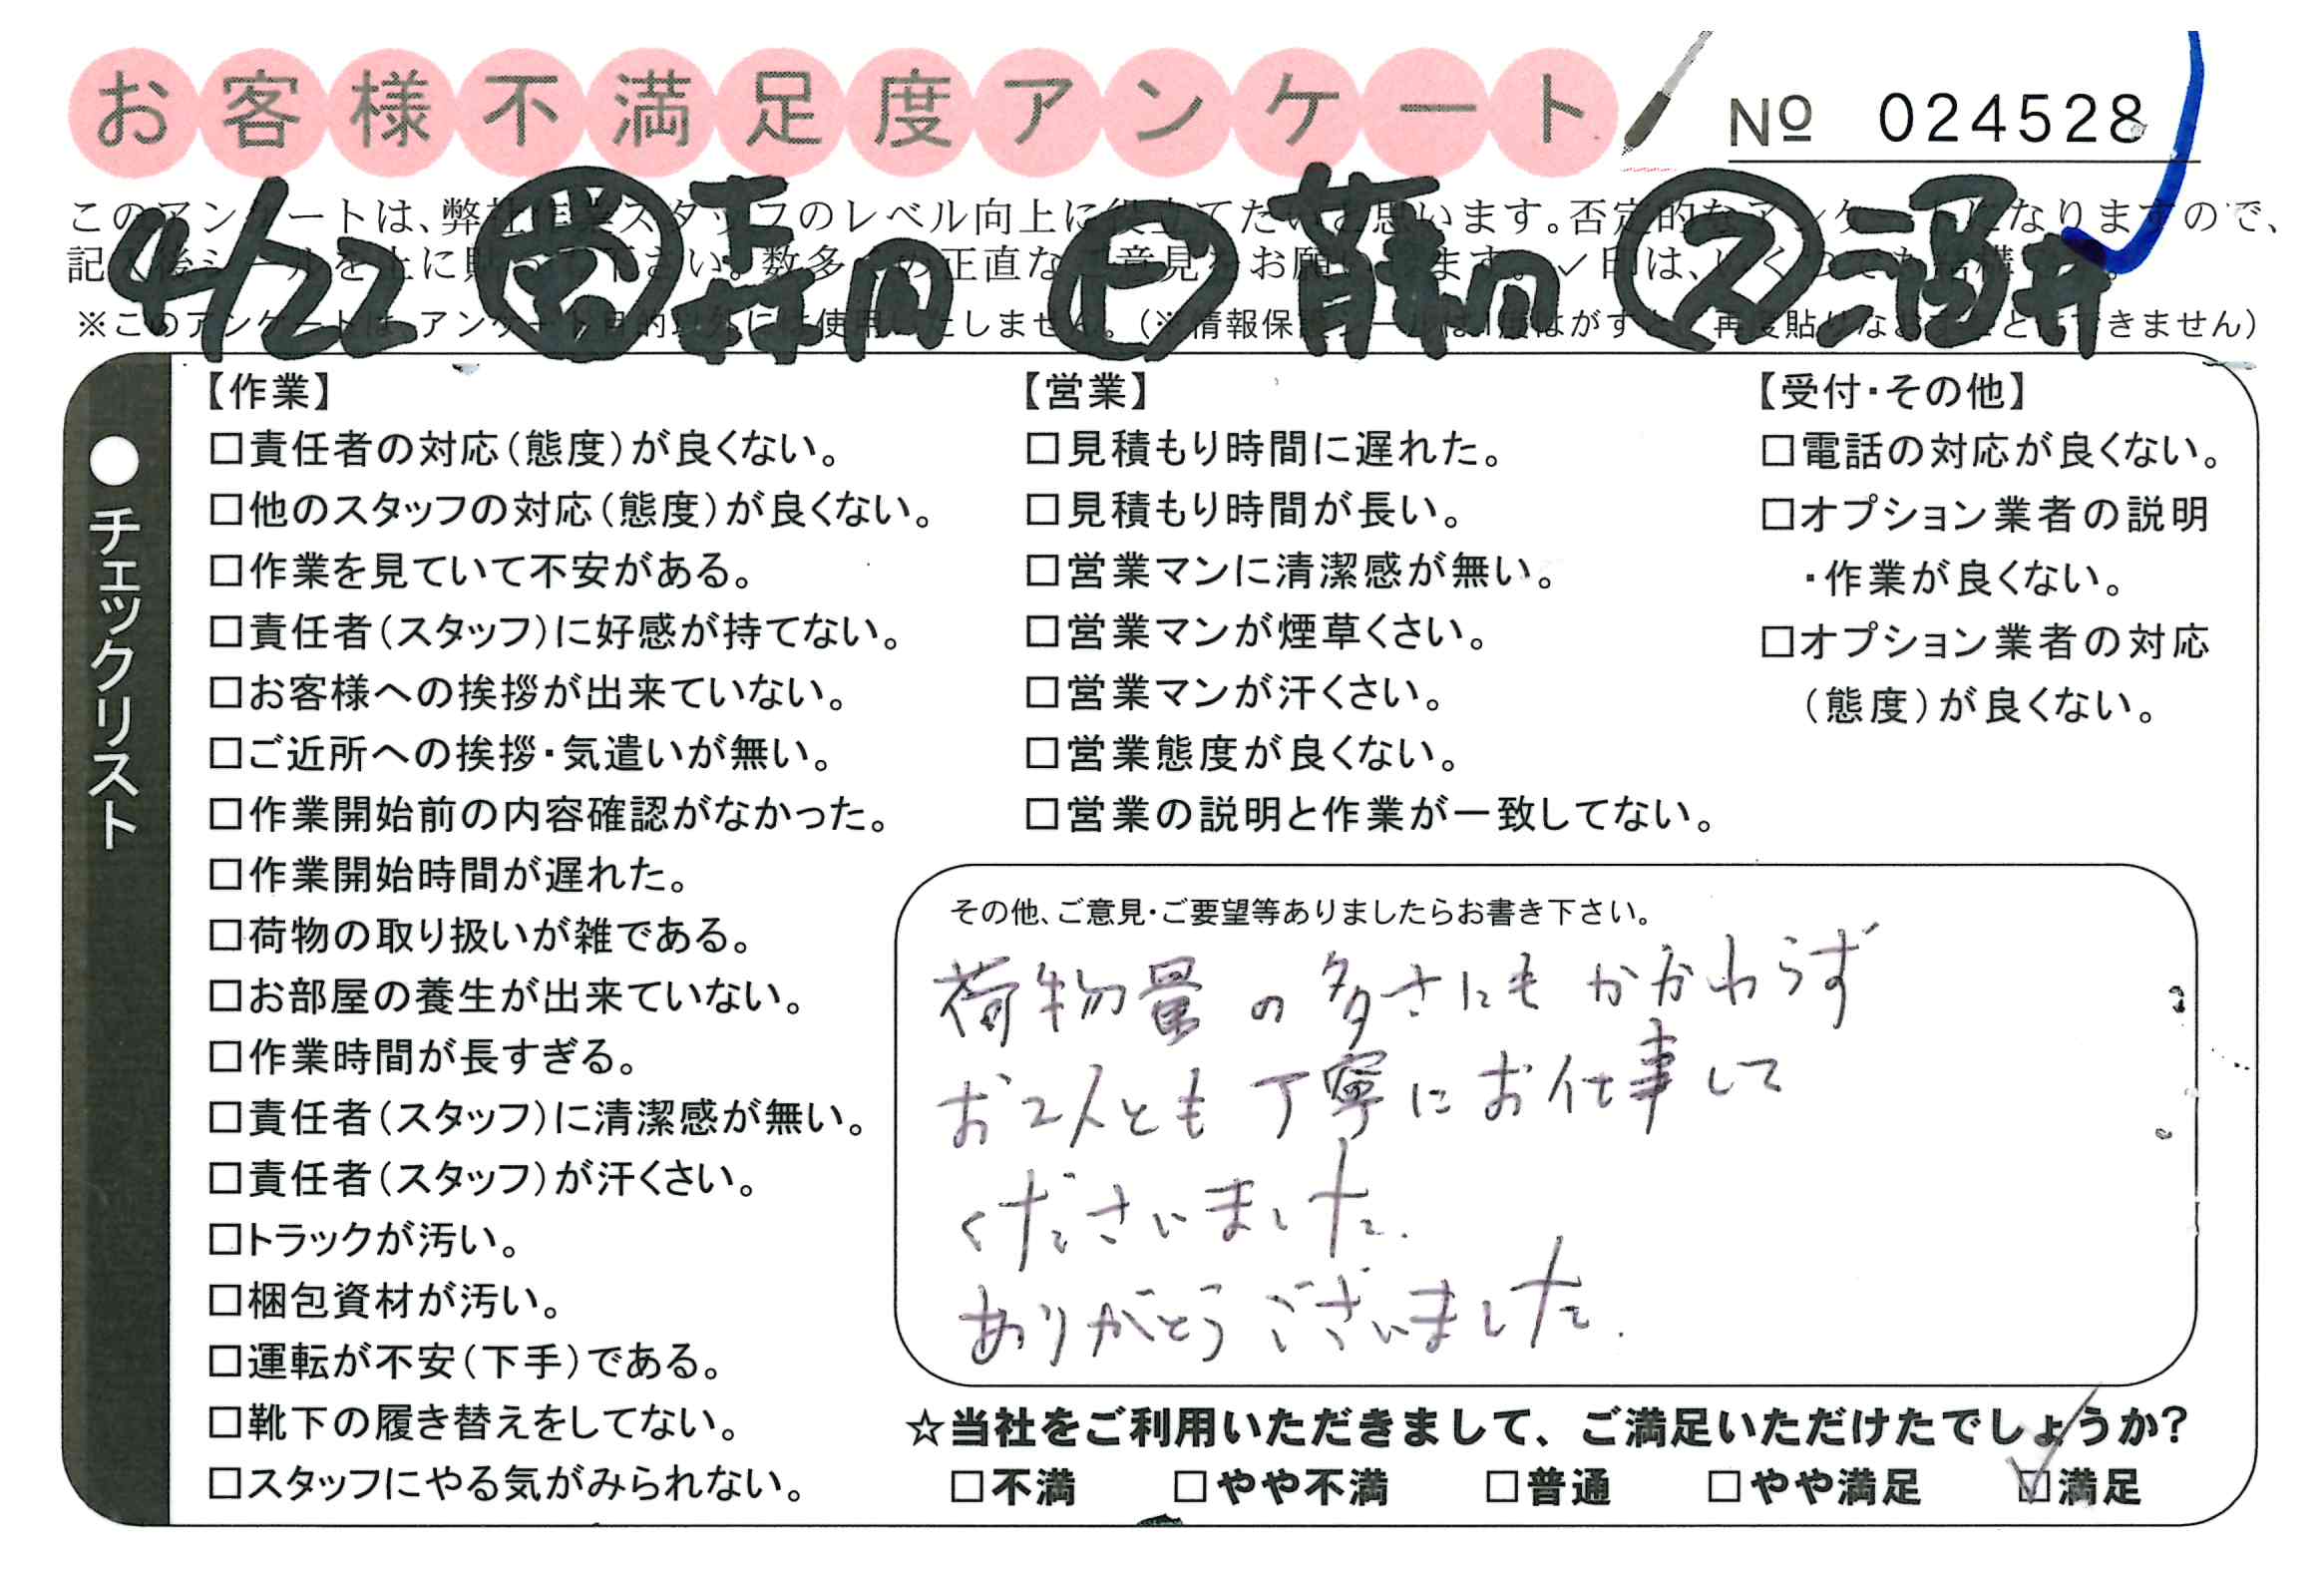 お客様不満足度アンケート
No 024528
4/22 営 森田 ヒ 藤田 ス 酒井
【作業】
□責任者の対応(態度)が良くない。
□他のスタッフの対応(態度)が良くない。
□作業を見ていて不安がある。
□責任者(スタッフ)に好感が持てない。
□お客様への挨拶が出来ていない。
□ご近所への挨拶・気遣いが無い。
□作業開始前の内容確認がなかった。
□作業開始時間が遅れた。
□荷物の取り扱いが雑である。
□お部屋の養生が出来ていない。
□作業時間が長すぎる。
□責任者(スタッフ)に清潔感が無い。
□責任者(スタッフ)が汗くさい。
□トラックが汚い。
□梱包資材が汚い。
□運転が不安(下手)である。
□靴下の履き替えをしてない。
□スタッフにやる気がみられない。
【営業】
□見積もり時間に遅れた。
□見積もり時間が長い。
□営業マンに清潔感が無い。
□営業マンが煙草くさい。
□営業マンが汗くさい。
□営業態度が良くない。
□営業の説明と作業が一致してない。
【受付・その他】
□電話の対応が良くない。
□オプション業者の説明
・作業が良くない。
□オプション業者の対応
(態度)が良くない。
●チェックリスト
その他、ご意見・ご要望等ありましたらお書き下さい。
荷物量の多さにもかかわらず
お2人とも丁寧にお仕事して
くださいました.
ありがとうございました.
☆当社をご利用いただきまして、ご満足いただけたでしょうか?
□不満 □やや不満 □普通 □やや満足 ☑満足